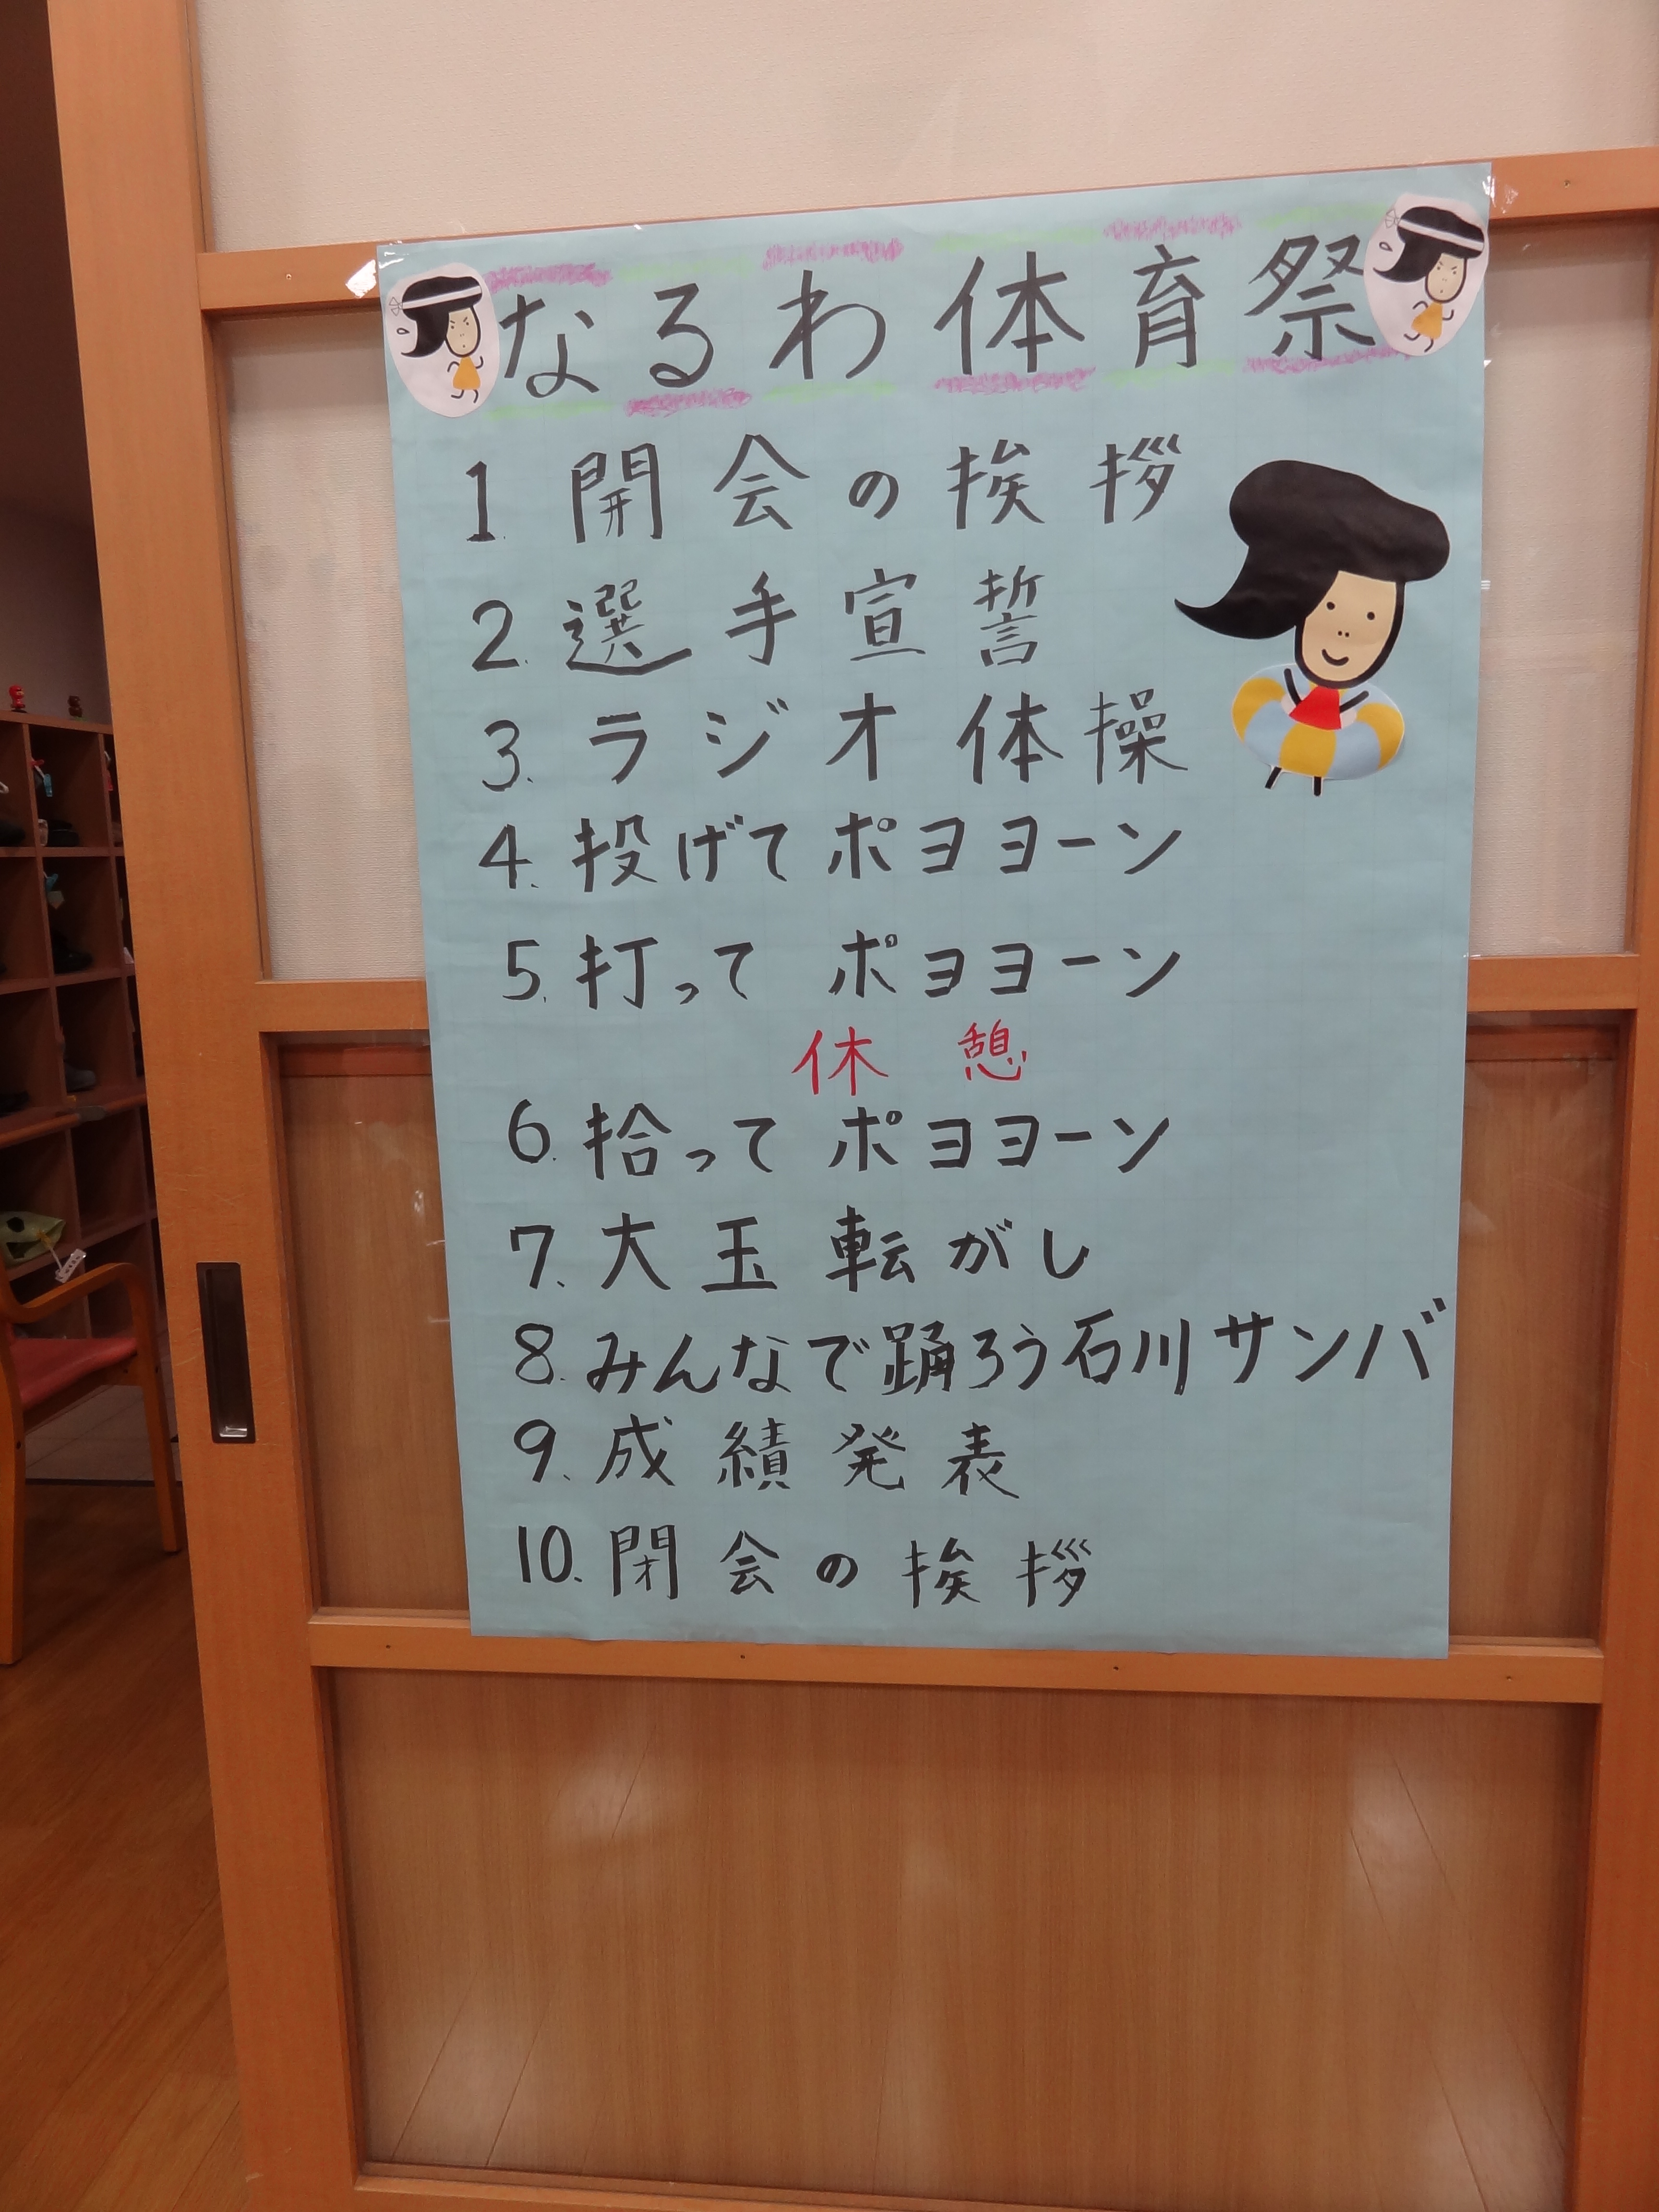 なるわ体育祭
1. 開会の挨拶
2. 選手宣誓
3. ラジオ体操
4. 投げてポヨヨーン
5. 打って ポヨヨーン
休憩
6. 拾って ポヨヨーン
7. 大玉転がし
8. みんなで踊ろう石川サンバ
9. 成績発表
10. 閉会の挨拶